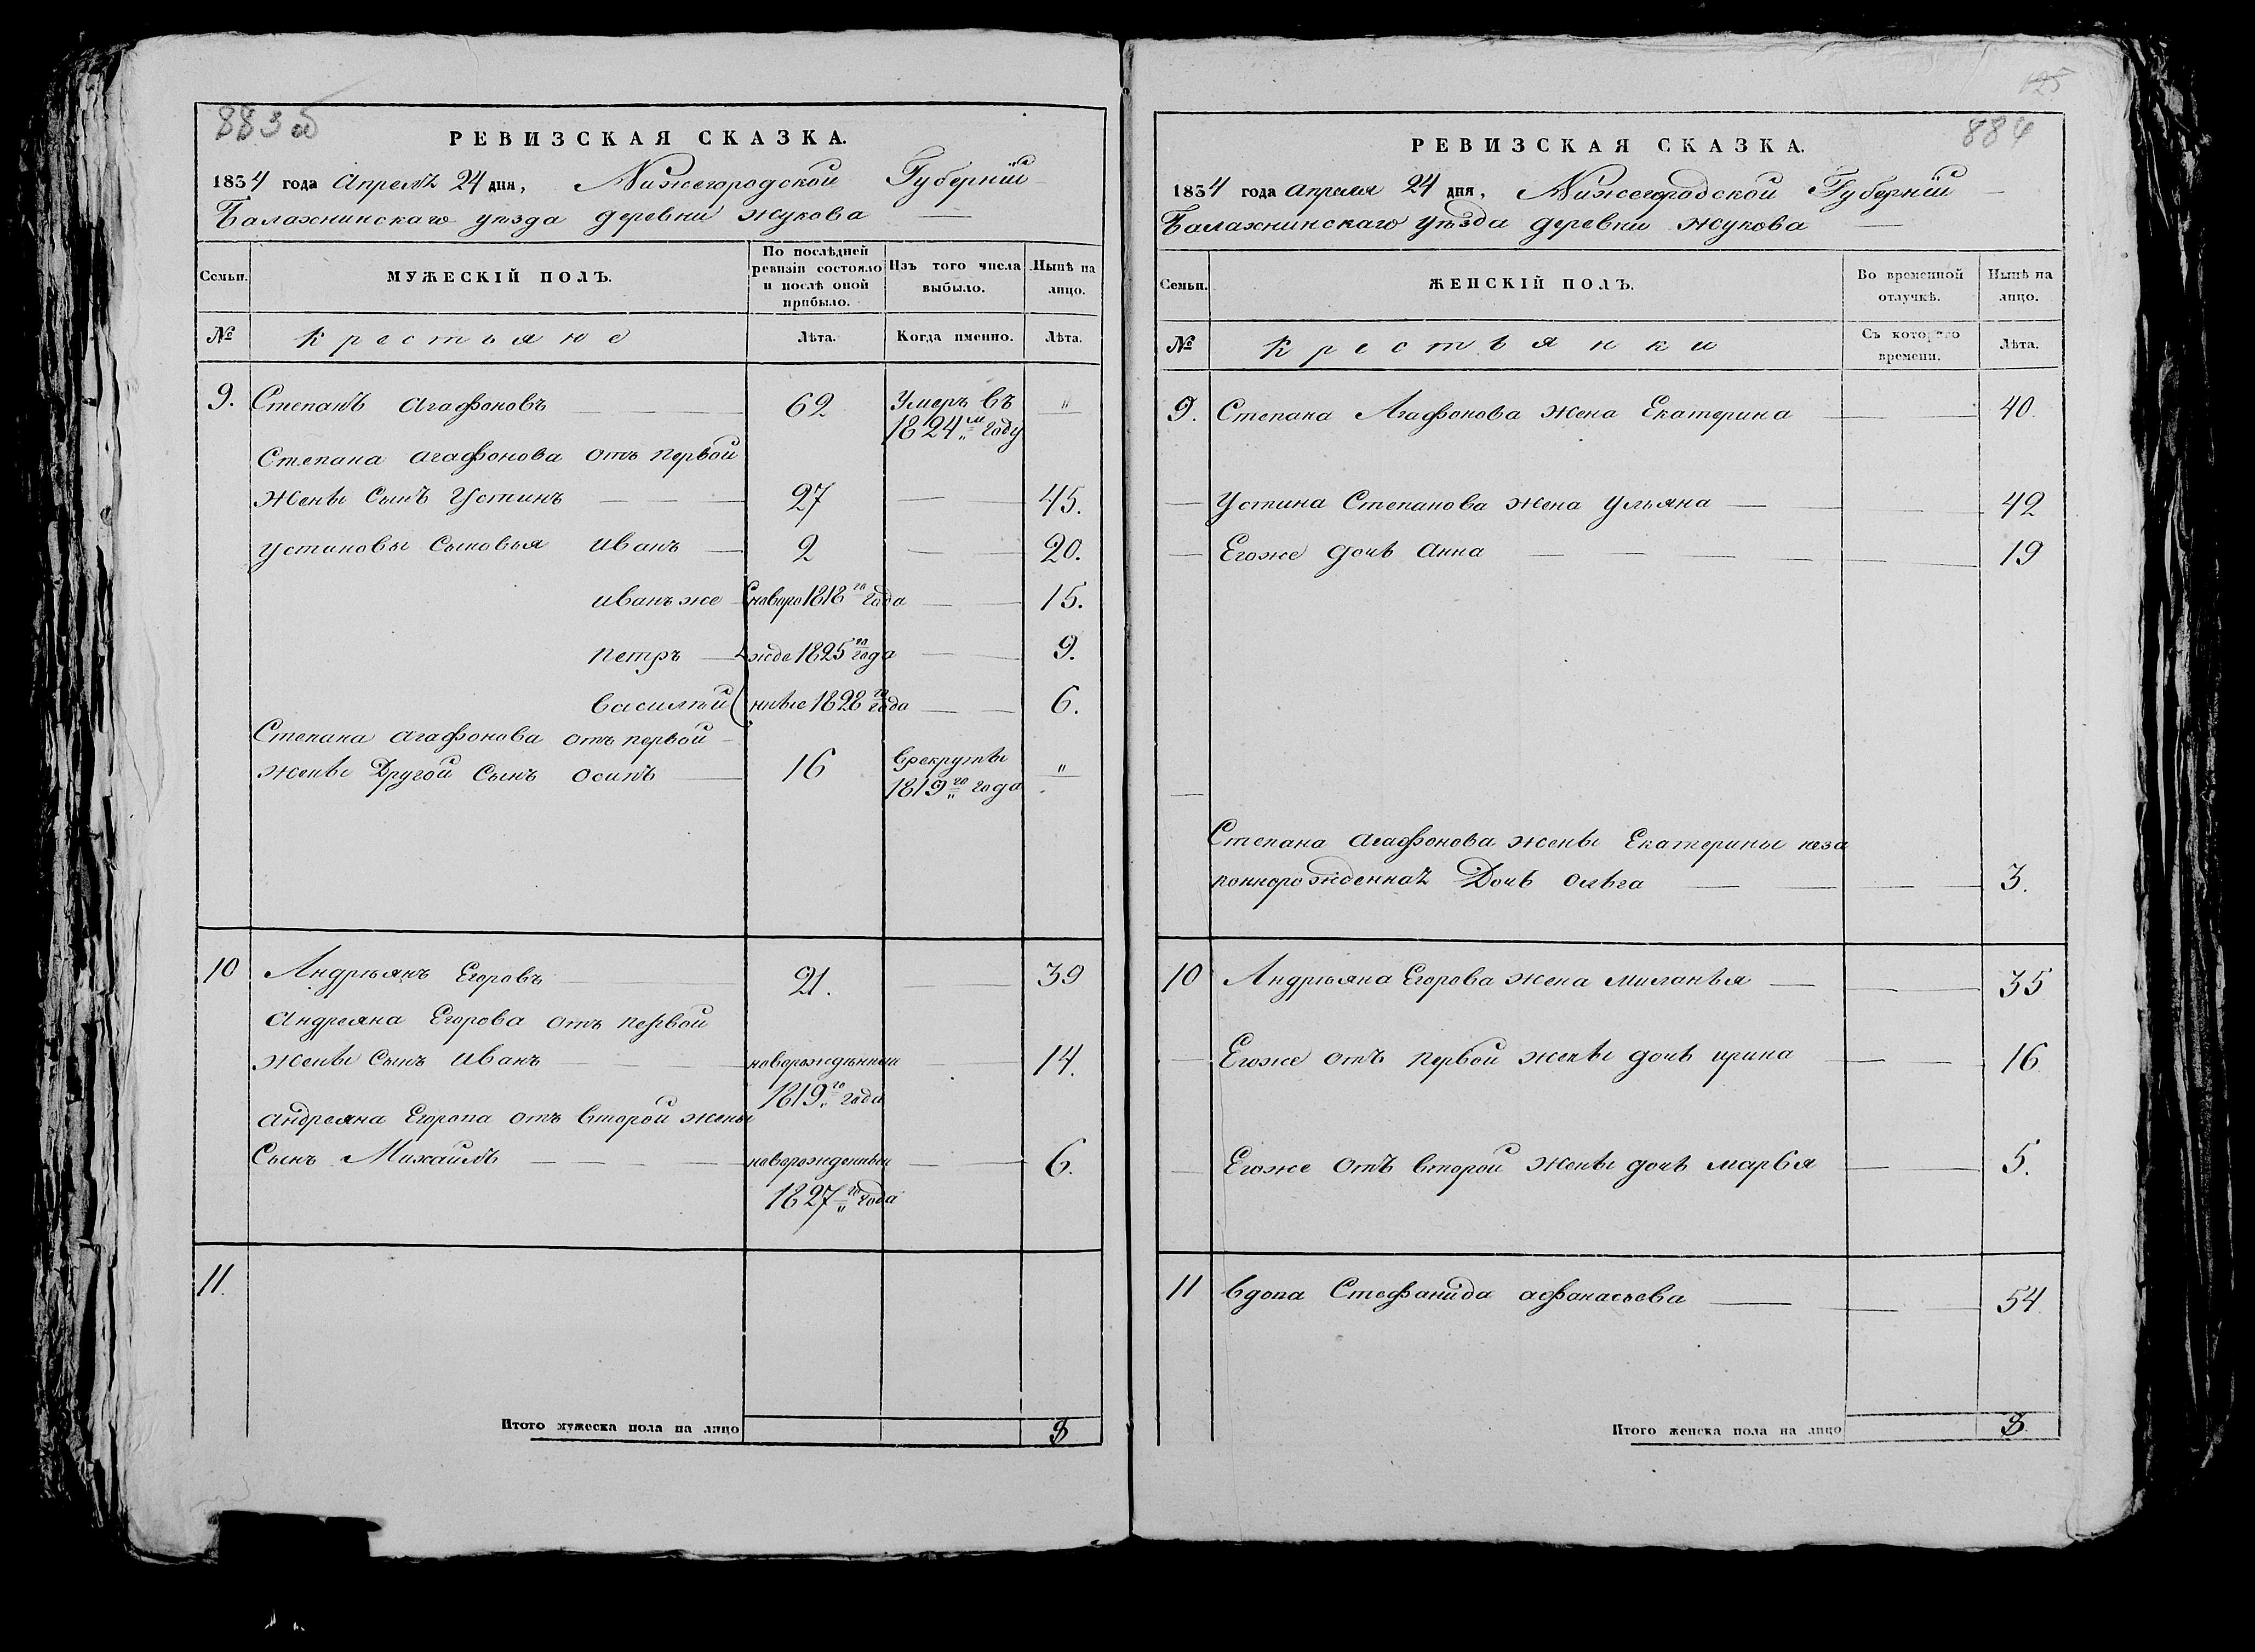 883 об
РЕВИЗСКАЯ СКАЗКА.
1834 года Апреля 24 дня, Нижегородской Губернiи
Балахнинскаго уѣзда деревни Жукова
Семьи.
МУЖЕСКІЙ ПОЛЪ.
По послѣдней ревизіи состояло и послѣ оной прибыло.
Изъ того числа выбыло.
Нынѣ на лицо.
№ Крестьяне Лѣта. Когда именно. Лѣта.
9. Степанъ Агафоновъ 62 Умеръ въ "
1824м году
Степана Агафонова отъ первой
жены сынъ Устинъ 27 45.
Устиновы сыновья Иванъ 2 20.
Иванъ же новоро 1818го года 15.
Петръ жде 1825го года 9.
Василій нные 1828го года 6.
Степана Агафонова отъ первой
жены Другой сынъ Осипъ 16 Врекруты "
1819го года
10 Андреянъ Егоровъ 21. 39
Андреяна Егорова отъ первой
жены сынъ Иванъ новорожденный 14.
1819го года
Андреяна Егорова отъ второй жены
Сынъ Михаилъ новорожденный 6.
1827го года
11.
Итого мужеска пола на лицо 8
125
884
РЕВИЗСКАЯ СКАЗКА.
1834 года апреля 24 дня, Нижегородской Губернiи
Балахнинскаго уѣзда деревни Жукова
Семьи.
ЖЕНСКІЙ ПОЛЪ.
Во временной отлучкѣ.
Нынѣ на лицо.
№ Крестьянки Съ котораго времени. Лѣта.
9. Степана Агафонова жена Екатерина 40.
Устина Степанова жена Ульяна 42
Егоже дочь Анна 19
Степана Агафонова жены Екатерины неза
коннорожденная Дочь Ольга 3.
10 Андреяна Егорова жена Миланья 35
Егоже отъ первой жены дочь Ирина 16
Егоже отъ второй жены дочь Марья 5.
11 Вдова Стефанида Афанасьева 54
Итого женска пола на лицо 8